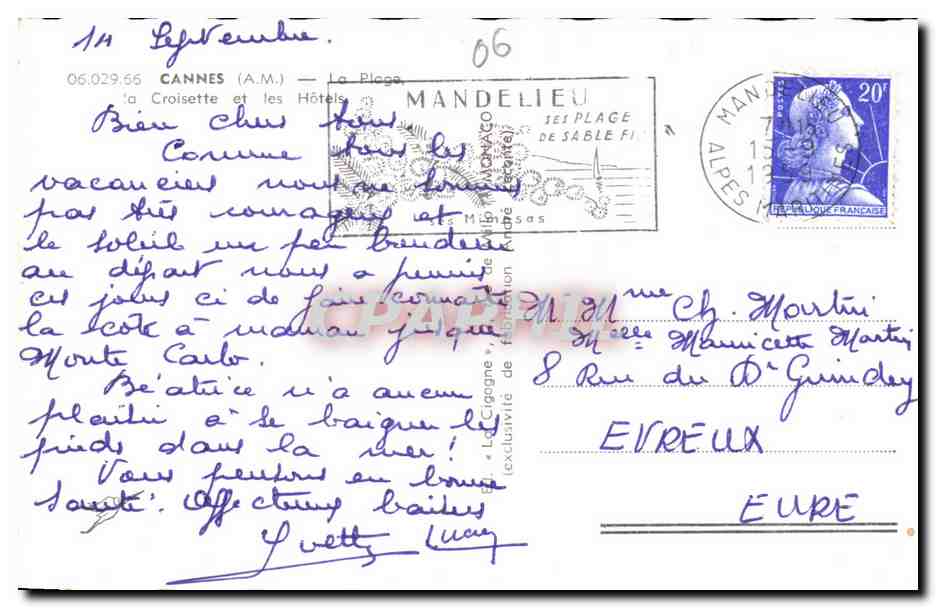 14 Septembre.
06
06.029.66 CANNES (A.M.) — La Plage,
la Croisette et les Hôtels
Bien chers tous.
Comme tous les
vacanciers nous ne sommes
pas très courageux et
le soleil un peu boudeur
au départ nous a permis
ces jours ci de faire connaître
la côte à maman jusque
Monte Carlo.
Béatrice n'a aucun
plaisir à se baigner les
pieds dans la mer!
Vous pensons en bonne
santé. Affectueux baisers
Yvette Lucien
MANDELIEU
SES PLAGE
DE SABLE FI
ses Mimosas
MANDELIEU
ALPES MARITIMES
POSTES
20F
REPUBLIQUE FRANCAISE
Ed. « La Cigogne », de MONACO
(exclusivité de fabrication André Leconte).
CPARAMA
M. Mme Ch. Martin
Melle Mauricette Martin
8 Rue du Dr Guindey
EVREUX
EURE